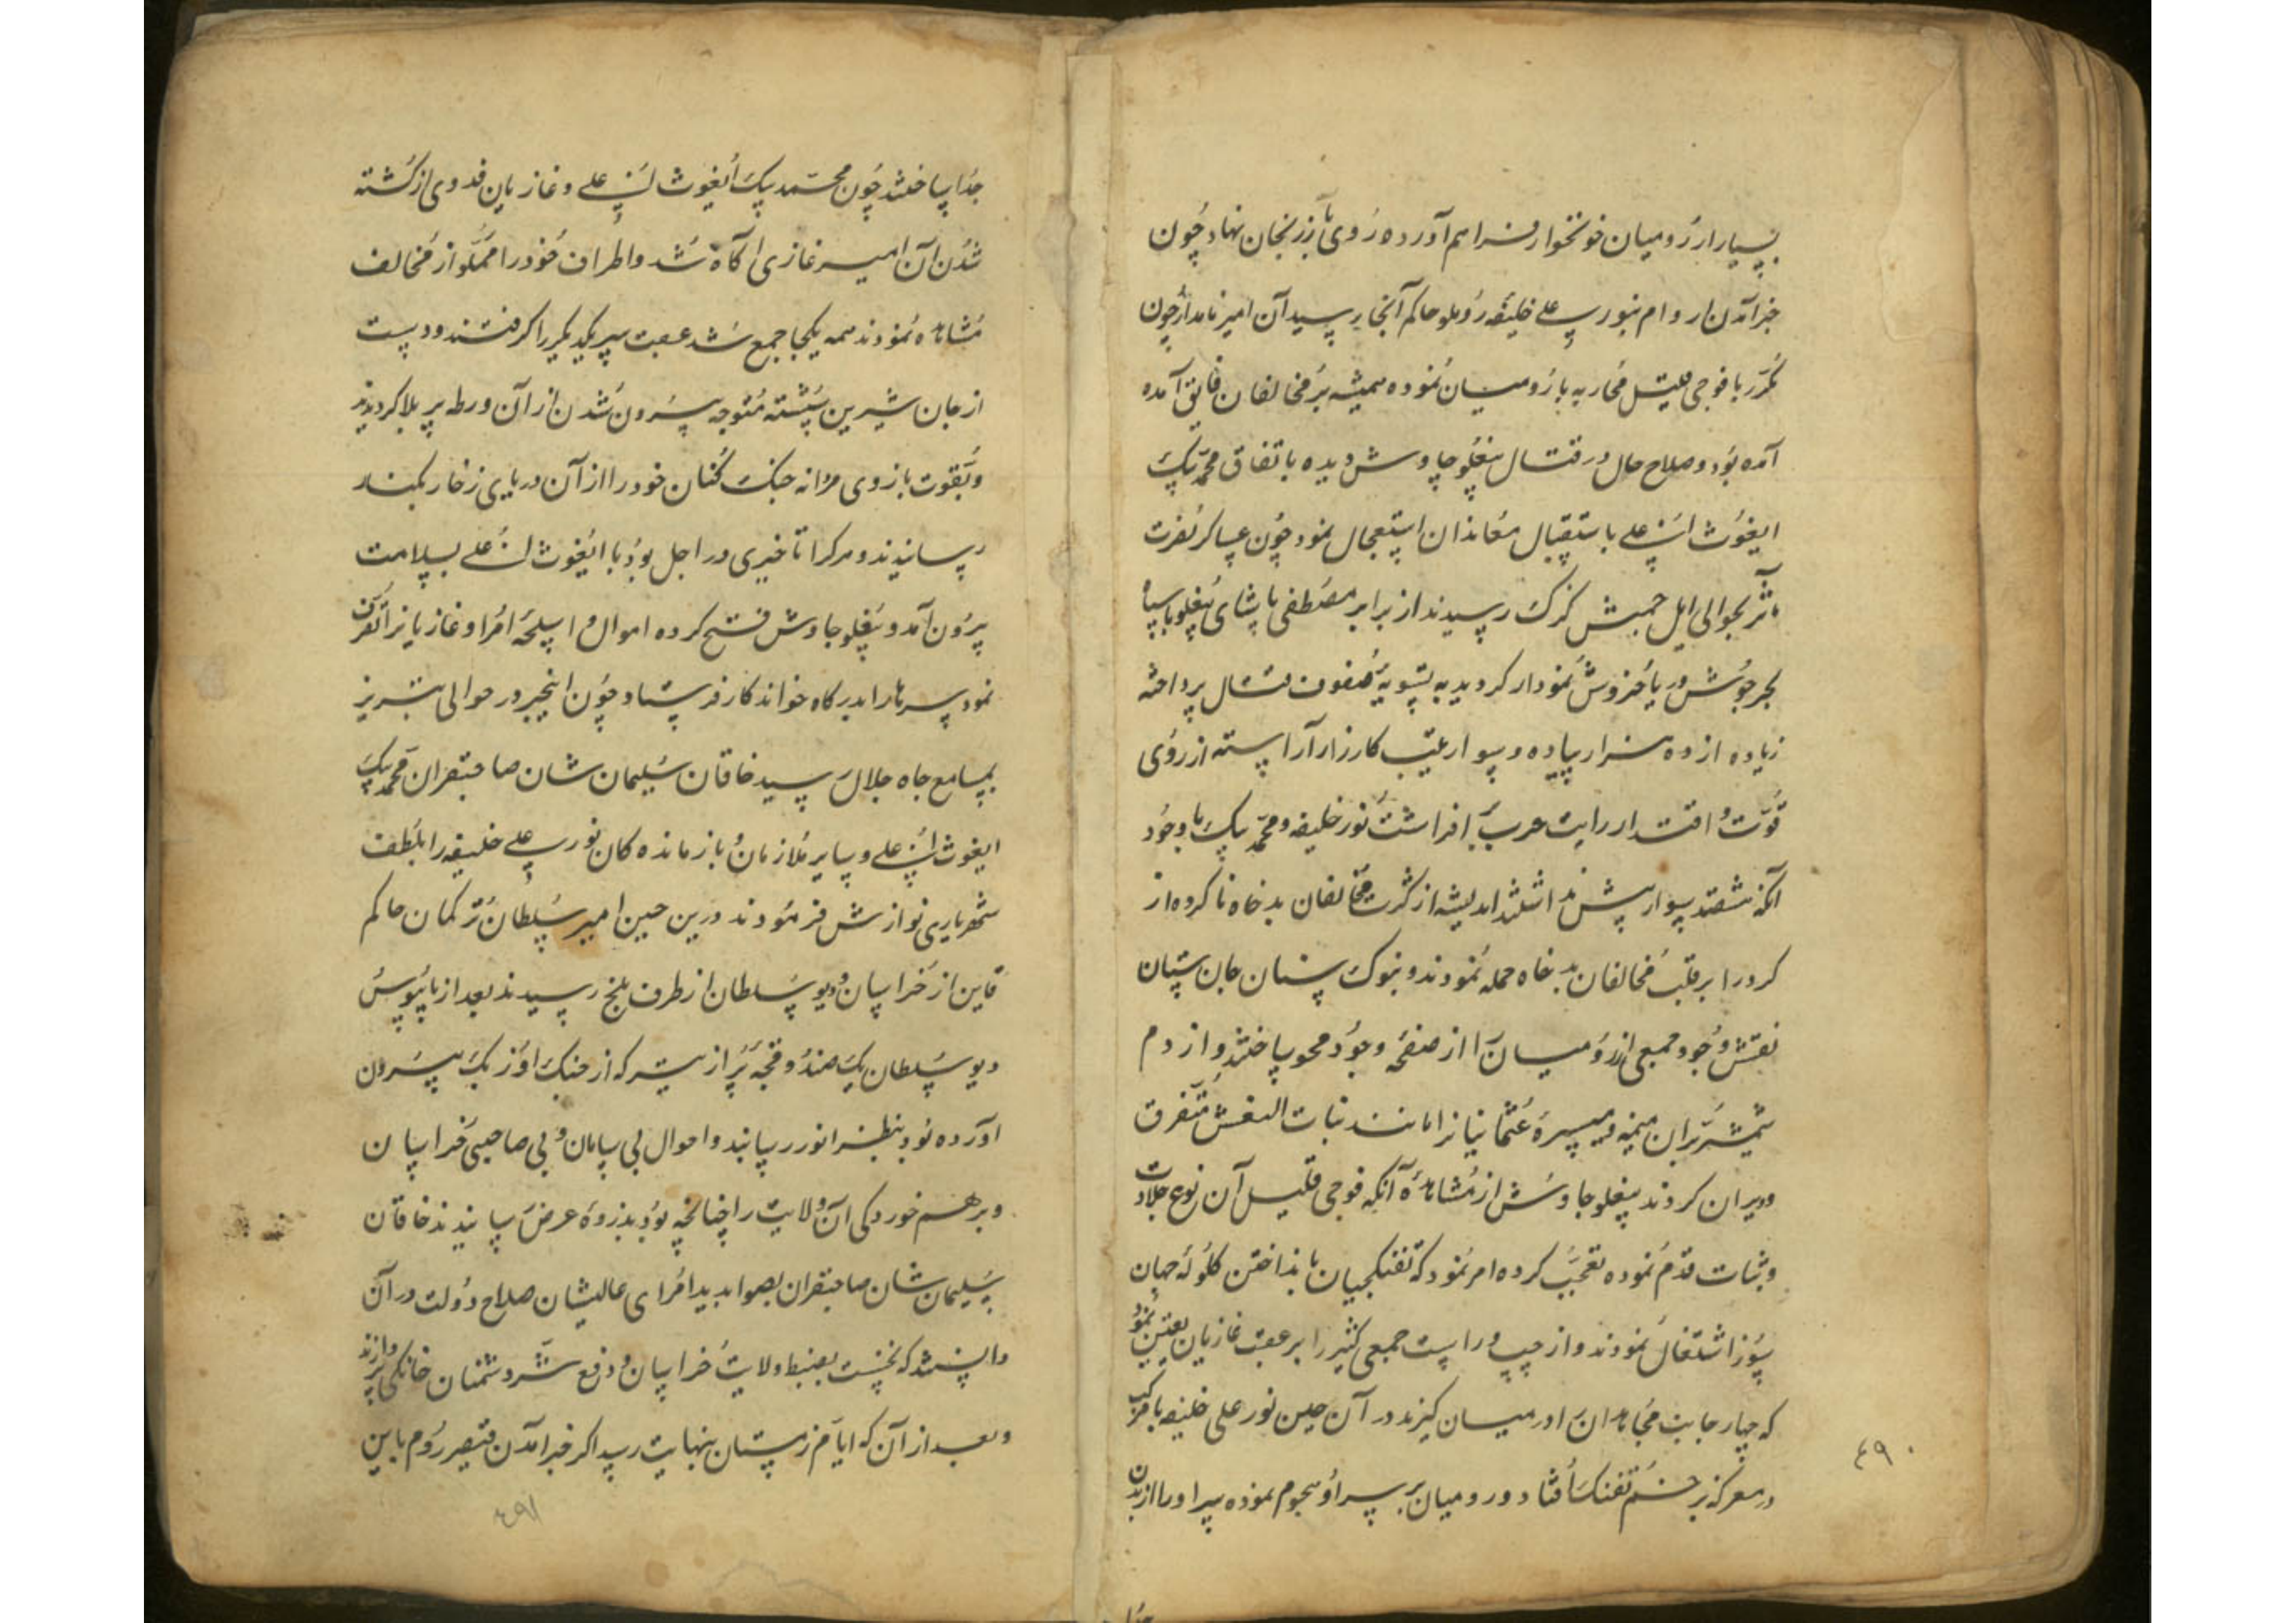 بسیار از رومیان خونخوار فراهم آورده روی بآزرنجان نهاد چون
خبر آمدن اروام بنور علی خلیفه روملو حاکم آنجا رسید آن امیر نامدار چون
مکرر با فوجی قلیل محاربه با رومیان نموده همیشه بر مخالفان فایق آمده
آمده بود و صلاح حال در قتال بیغلو چاوش دیده باتفاق محمد بیک
ایغوث علی باستقبال معاندان استعجال نمود چون عساکر نصرت
مآثر بحوالی ایل جمیش کزک رسیدند از برابر مصطفی پاشای بیغلو با سپاه
بحر جوش دریا خروش نمودار کردید به تسویهٔ صفوف قتال پرداخته
زیاده از ده هزار پیاده و سوار بترتیب کارزار آراسته از روی
قوت و اقتدار رایت حرب افراشت نور خلیفه و محمد بیک با وجود
آنکه ششصد سوار بیش نداشتند اندیشه از کثرت مخالفان بدخواه ناکرده از
کرد راه بر قلب مخالفان بدخاه حمله نمودند و بنوک سنان جان ستان
نقش وجود جمعی از رومیان را از صفحهٔ وجود محو ساختند و از دم
شمشیر بران میمنه و میسرهٔ عثمانیانرا مانند بنات النعش متفرق
و ویران کردند بیغلو چاوش از مشاهدهٔ آنکه فوجی قلیل آن نوع جلادت
و ثبات قدم نموده تعجب کرده امر نمود که تفنکچیان بانداختن کلولهٔ جهان
سوز اشتغال نمودند و از چپ و راست جمعی کثیر را بر عقب غازیان تعیین نمود
که چهار جانب مجاهدان را در میان کیرند در آن حین نور علی خلیفه با مرکب
در معرکه بزخم تفنک افتاد و رومیان بر سر او هجوم نموده سر او را از بدن
٤٩٠
جدا ساختند چون محمد بیک ایغوث علی و غازیان فدوی از کشته
شدن آن امیر غازی آکاه شد و اطراف خود را مملو از مخالف
مشاهده نمودند همه یکجا جمع شد عقب سر یکدیکر را کرفتند و دست
از جان شیرین شسته متوجه بیرون شدن از آن ورطه پر بلا کردیدند
و بقوت بازوی مردانه جنک کنان خود را از آن دریای زخار بکنار
رسانیدند و هر کرا تاخیری در اجل بود با ایغوث علی بسلامت
بیرون آمد و بیغلو چاوش فتح کرده اموال و اسلحهٔ امرا و غازیانرا
نمود سرها را بدرکاه خواندکار فرستاد و چون اینخبر در حوالی تبریز
بمسامع جاه جلال رسید خاقان سلیمان شان صاحبقران محمد بیک
ایغوث علی و سایر ملازمان و بازمانده کان نور علی خلیفه را بلطف
شهریاری نوازش فرمودند درین حین امیر سلطان ترکمان حاکم
قاین از خراسان و دیو سلطان از طرف بلخ رسیدند بعد از پابوس
دیو سلطان یک صندوقچه پر از تیر که از جنک اوزبک بیرون
آورده بود بنظر انور رسانید و احوال بی سامان و بی صاحبی خراسان
و برهم خوردکی آن ولایت را چنانچه بود بذروهٔ عرض رسانیدند خاقان
سلیمان شان صاحبقران بصوابدید امرای عالیشان صلاح دولت در آن
دانستند که نخست بضبط ولایت خراسان و دفع شر دشمنان خانکی پردازند
و بعد از آن که ایام زمستان بنهایت رسید اکر خبر آمدن قیصر روم باین
٤٩١